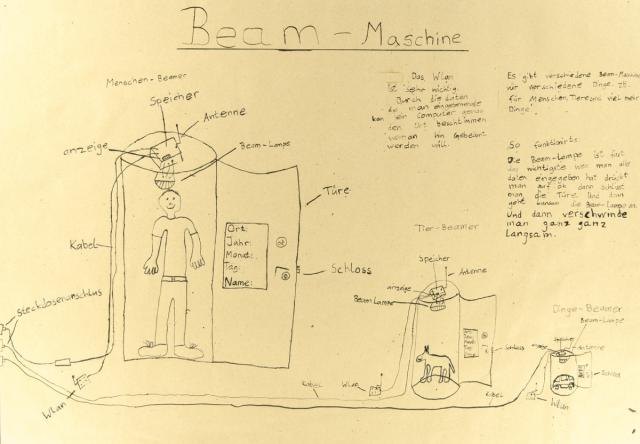 Beam - Maschine
Menschen-Beamer
Speicher
Antenne
anzeige
Beam-Lampe
Türe
Kabel
Ort:
Jahr:
Monat:
Tag:
Name:
Schloss
Wlan
Das Wlan
ist sehr wichtig.
Durch die daten
die man eingegeben
kan ein Computer genau
den Ort beschtimmen
wo man hin Gebeamt
werden will.
Es gibt verschiedene Beam-Maschinen
für verschiedene Dinge z.B.
für Menschen, Tiere und viel mehr
Dinge.
So funktionirts:
Die Beam-Lampe ist fast
das wichtigste wen man alle
daten eingegeben hat drückt
man auf ok dann schlist
man die Türe und dan
geht die Beam-Lampe an
Und dann verschwinde
man ganz ganz
Langsam.
Tier-Beamer
Speicher
Antenne
anzeige
Beam Lampe
Schloss
Kabel
Wlan
Dinge-Beamer
Beam-Lampe
Speicher
Antenne
Schloss
Kabel
Wlan